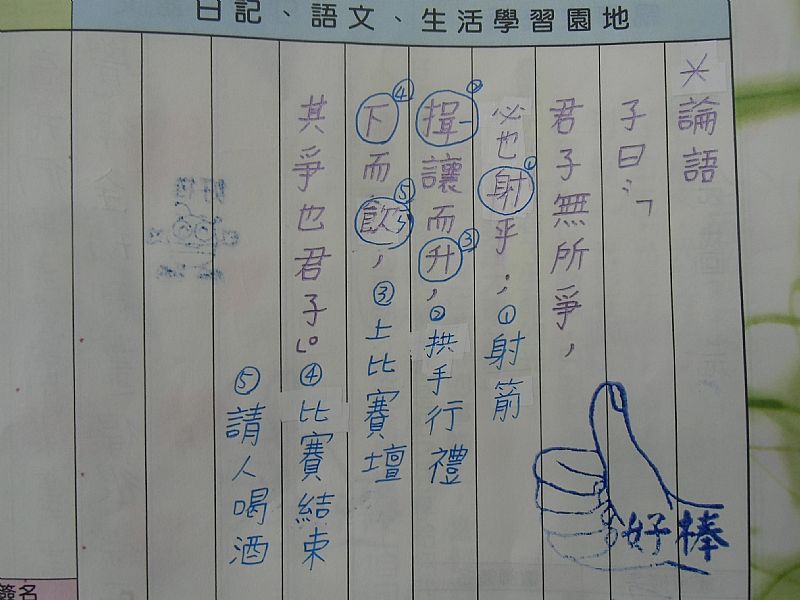 日記、語文、生活學習園地
＊論語
子曰：「
君子無所爭，
必也射①乎；①射箭
揖②讓而升③，②拱手行禮
下④而飲⑤，③上比賽壇
其爭也君子」。④比賽結束
⑤請人喝酒
好棒
簽名